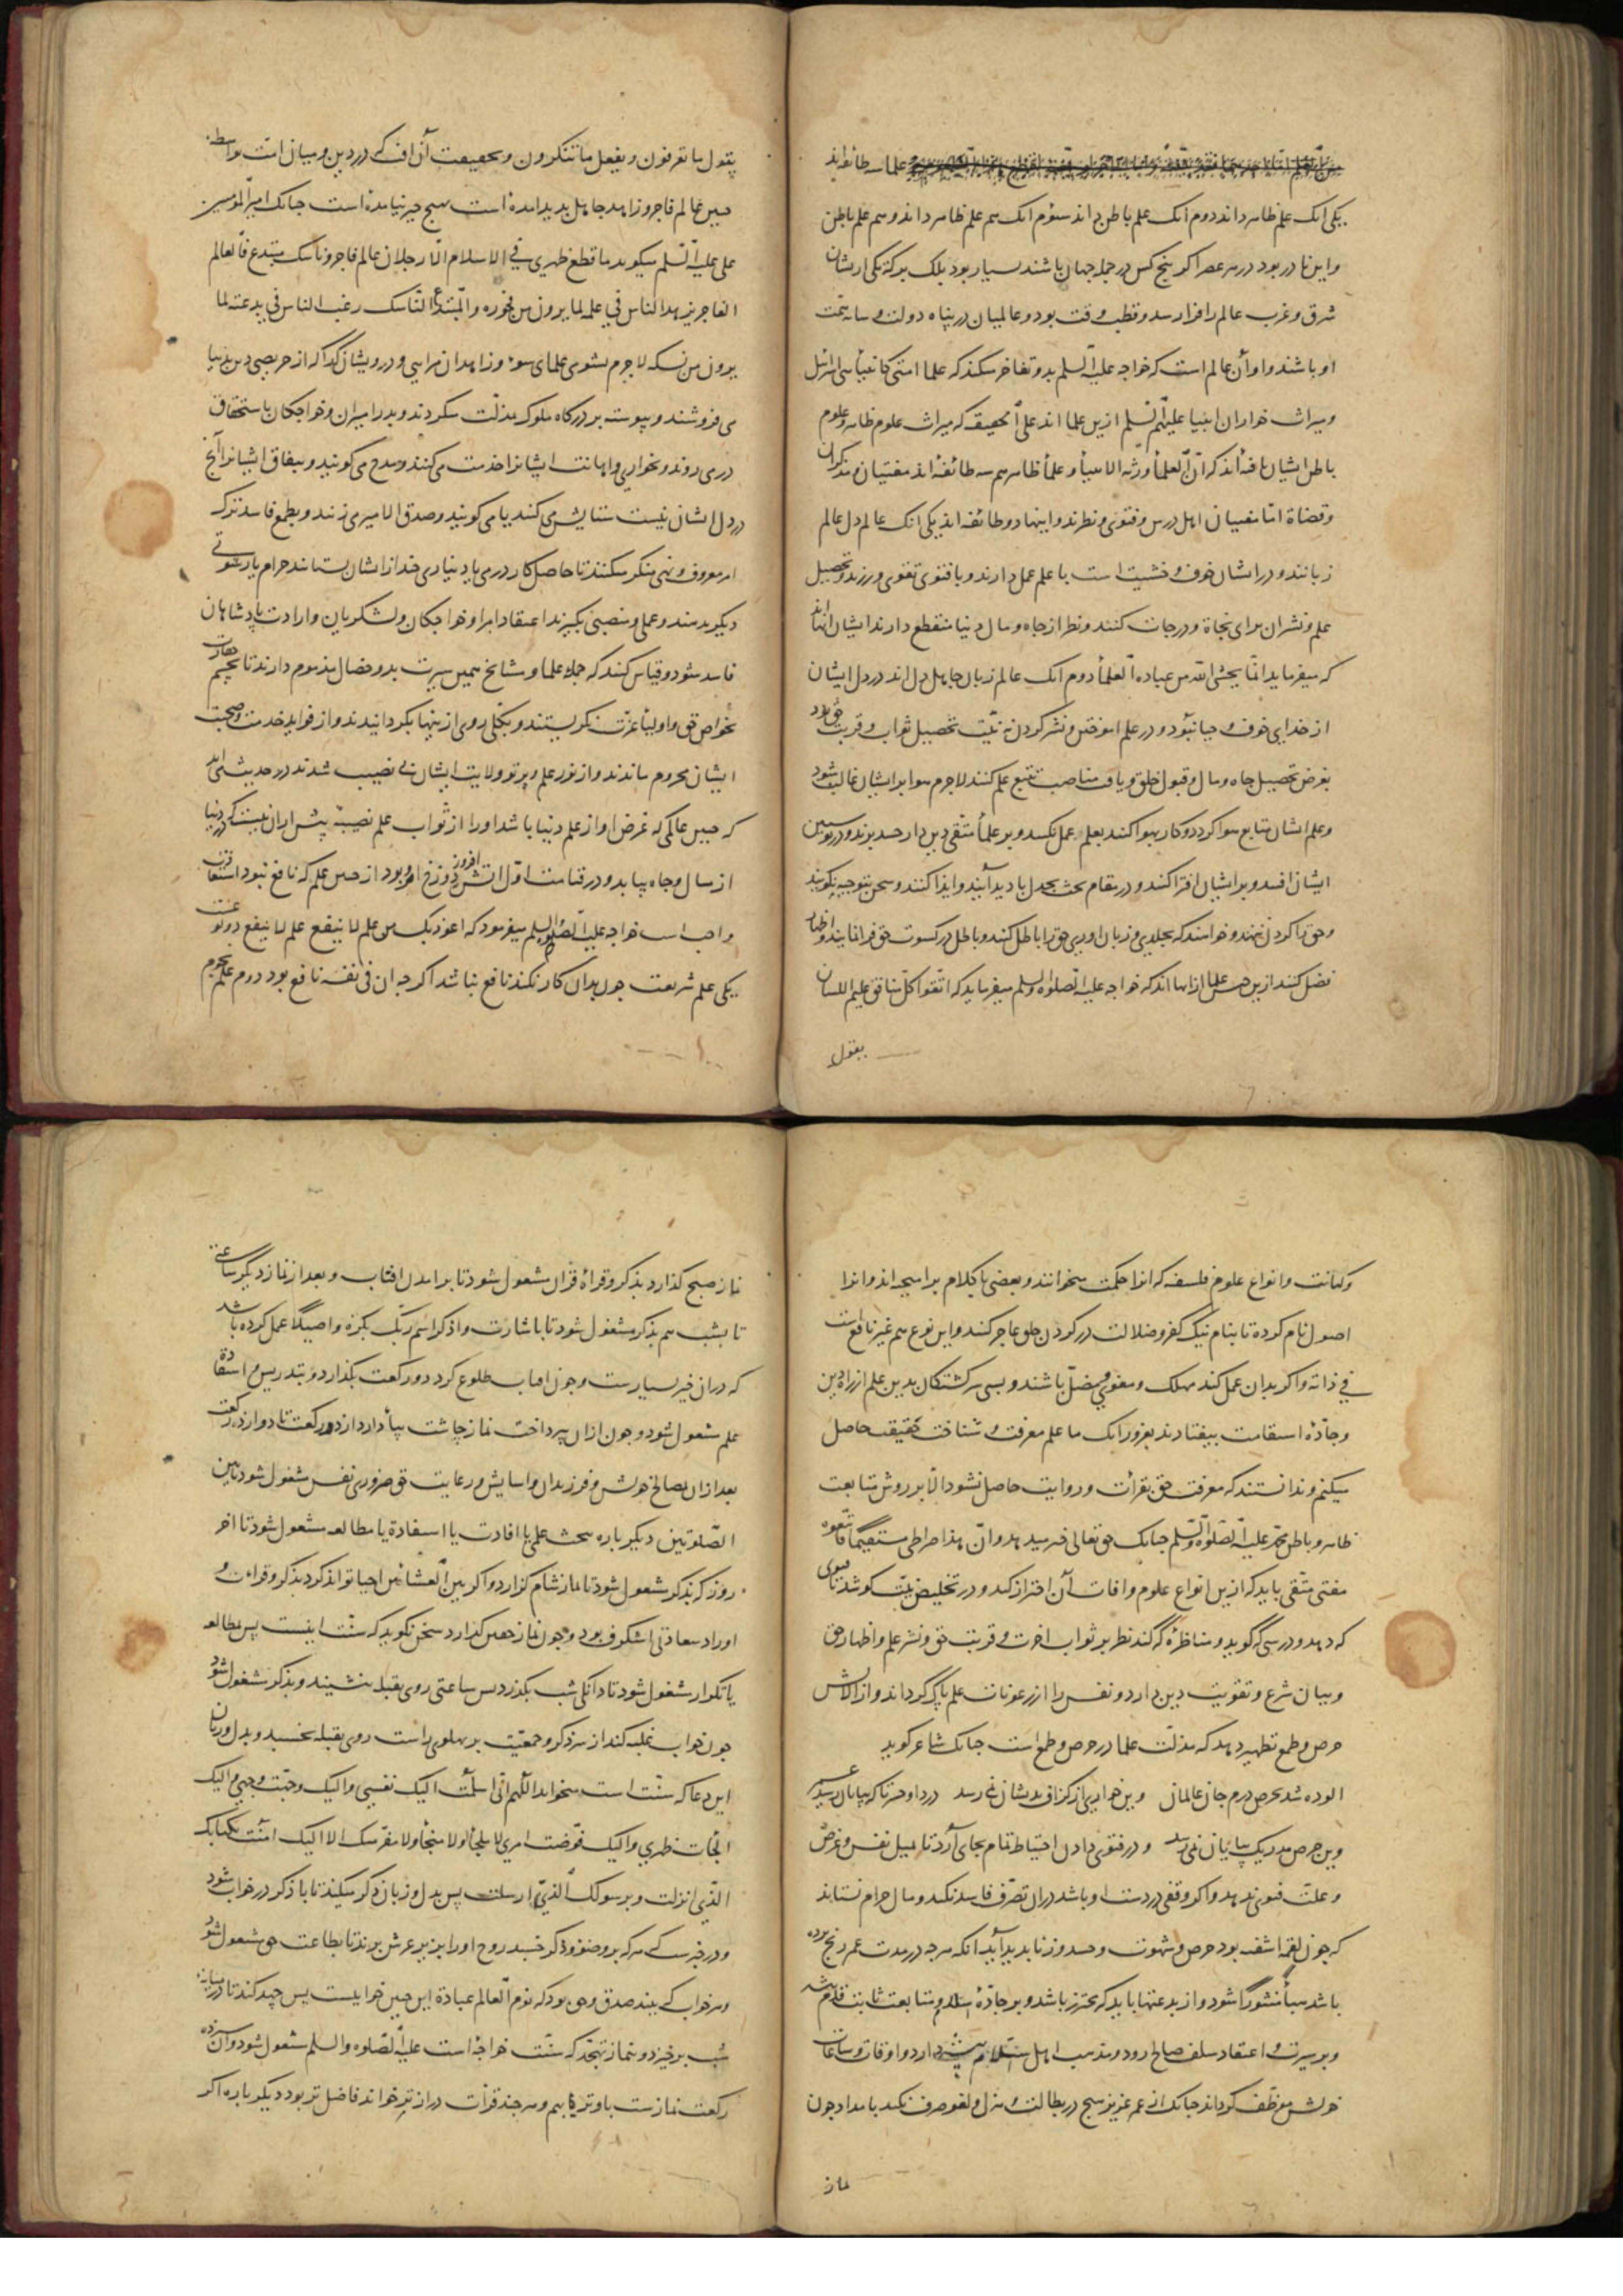 علما سه طائفه‌اند
یکی آنک علم ظاهر داند دوم آنک علم باطن داند سوم آنک هم علم ظاهر داند و هم علم باطن
و این نادر بود در هر عصر اگر پنج کس در جمله جهان باشند بسیار بود بلک برکه یکی ازیشان
شرق و غرب عالم را فرا رسد و قطب وقت بود و عالمیان در پناه دولت و سایه همت
او باشند و او آن عالم است که خواجه علیه السلم بدو تفاخر میکند که علما امتی کانبیاء بنی اسرائیل
و میراث خواران انبیا علیهم السلم ازین علما اند علی الحقیقه که میراث علوم ظاهر و علوم
باطن ایشان یافته‌اند که انّ العلماء ورثة الانبیاء و علماء ظاهر هم سه طائفه اند مفتیان و مذکران
و قضاة امّا مفتیان اهل درس و فتوی و نظرند و اینها دو طائفه اند یکی آنک عالم دل عالم
زبانند و در ایشان خوف و خشیت است با علم عمل دارند و با فتوی تقوی ورزند و تحصیل
علم و نشر آن برای نجاة و درجات کنند و نظر از جاه و مال دنیا منقطع دارند ایشان آنهااند
که میفرماید انّما یخشی الله من عباده العلماء دوم آنک عالم زبان جاهل دل اند در دل ایشان
از خدای خوف و حیا نبود و در علم آموختن و نشر کردن نیّت تحصیل ثواب و قربت حق نبود
بغرض تحصیل جاه و مال و قبول خلق و یافت مناصب تتبع علم کنند لاجرم هوا بر ایشان غالب شود
و علم ایشان متابع هوا گردد و کار بهوا کنند بعلم عمل نکنند و بر علماء متّقی دین دار حسد برند و در پوستین
ایشان افتند و بر ایشان افترا کنند و در مقام بحث بجدل با دید آیند و ایذا کنند و سخن بتوجیه نگویند
و حق را گردن ننهند و خواهند که بجلدی و زبان آوری حق را باطل کنند و باطل در کسوت حق فرا نمایند و اظهار
فضل کنند ازین جنس علما از آنها اند که خواجه علیه الصلوة و السلم میفرماید که اتّقوا کلّ منافق علیم اللسان
یقول
یقول ما تعرفون و یفعل ما تنکرون و بحقیقت آن آفت که در دین و میان امّت بواسطه
چنین عالم فاجر و زاهد جاهل بدید آمده است بهیچ چیز نیامده است چنانک امیر المؤمنین
علی علیه السّلم میگوید ما قطع ظهری فی الاسلام الّا رجلان عالم فاجر و ناسک مبتدع فالعالم
الفاجر یزهد الناس فی علمه لما یرون من فجوره و المبتدع النّاسک رغب الناس فی بدعته لما
یرون من نسکه لاجرم بشومی علمای سوء و زاهدان مرایی و درویشان گدا که از حریصی دین بدنیا
می فروشند و پیوسته بر درگاه ملوک بمذلّت میگردند و بدر امیران و خواجگان باستخفاف
در می روند و بخواری و اهانت ایشانرا خدمت می کنند و مدح می گویند و بنفاق ایشانرا آنچ
در دل ایشان نیست ستایش می کنند یا می گویند و صدق الامیر می زنند و بطمع فاسد ترک
امر معروف و نهی منکر میکنند تا حاصل کار درمی یا دیناری چند از ایشان بستانند حرام یا رشوتی
دیگر بدهند و عملی و منصبی بگیرند اعتقاد امرا و خواجگان و لشکریان و ارادت پادشاهان
فاسد شود و قیاس کنند که جمله علما و مشایخ همین سیرت بد و خصال مذموم دارند تا بچشم حقارت
بخواص حق و اولیاء عزّت نگریستند و بکلّی روی ازینها بگردانیدند و از فواید خدمت و صحبت
ایشان محروم ماندند و از نور علم و پرتو ولایت ایشان بی نصیب شدند در حدیث می‌آید
که چنین عالمی که غرض او از علم دنیا باشد او را از ثواب علم نصیبه پیش از آن نیست که در دنیا
از مال و جاه بیابد و در قیامت اوّل آتش افروز دوزخ او بود از چنین علم که نافع نبود استعاذت
واجب است خواجه علیه الصلوة و السلم میفرمود که اعوذ بک من علم لا ینفع علم لا ینفع دو نوعست
یکی علم شریعت چون بدان کار نکنند نافع نباشد اگر چه آن فی نفسه نافع بود دوم علم نجوم
و کهانت و انواع علوم فلسفه که آنرا حکمت میخوانند و بعضی با کلام بر آمیخته اند و آنرا
اصول نام کرده تا بنام نیک کفر و ضلالت در گردن خلق عاجز کنند و این نوع هم غیر نافع است
فی ذاته و اگر بدان عمل کند مهلک و مغوی و مضلّ باشند و بسی سرگشتگان بدین علم از راه دین
و جادّۀ استقامت بیفتادند بغرور آنک ما علم معرفت و شناخت حقیقت حاصل
میکنیم و ندانستند که معرفت حق بقرائت و روایت حاصل نشود الّا بر روش متابعت
ظاهر و باطن محمّد علیه الصّلوة و السّلم چنانک حق تعالی خبر میدهد و انّ هذا صراطی مستقیما فاتّبعوه
مفتی متّقی باید که ازین انواع علوم و آفات آن احتراز کند و در تخلیص نیّت کوشد تا فتوی
که دهد و درسی که گوید و مناظرۀ که کند نظر بر ثواب آخرت و قربت حق و نشر علم و اظهار حق
و بیان شرع و تقویت دین دارد و نفس را از رعونات علم پاک گرداند و از آلایش
حرص و طمع تطهیر دهد که مذلّت علما در حرص و طمع است چنانک شاعر گوید
آلوده شد بحرص درم جان عالمان وین خواری از گزاف بدیشان نمی رسد دردا و حسرتا که بپایان رسید عمر
وین حرص مرده ریگ بپایان نمی رسد و در فتوی دادن احتیاط تمام بجای آرد تا بمیل نفس و غرض
و علّت فتوی ندهد و اگر وقفی در دست او باشد در آن تصرّف فاسد نکند و مال حرام نستاند
که چون لقمه آشفته بود حرص و شهوت و حسد و زنا بدید آید آنکه هر چه در مدت عمر رنج برده
باشد هباءً منثورا شود و از بدعتها باید که محترز باشد و بر جادّۀ اسلام و متابعت ثابت قدم باشد
و بر سیرت و اعتقاد سلف صالح رود و مذهب اهل سنّت دارد و اوقات و ساعات
خویش موظّف گرداند چنانک از عمر عزیز هیچ در بطالت و هزل و لغو صرف نکند بامداد چون
نماز
نماز صبح گذارد بذکر و قرأة قرآن مشغول شود تا بر آمدن آفتاب و بعد از نماز دیگر ساعتی
تا بشب هم بذکر مشغول شود تا باشارت و اذکر اسم ربّک بکرة و اصیلا عمل کرده باشد
که در آن خیر بسیارست و چون آفتاب طلوع کرد دو رکعت بگذارد و بتدریس و استفادة
علم مشغول شود و چون از آن پرداخت نماز چاشت بپا دارد از دو رکعت تا دوازده رکعت
بعد از آن بمصالح خویش و فرزندان و آسایش و رعایت حق ضروری نفس مشغول شود تا بین
الصّلوتین دیگر باره ببحث علمی یا افادت یا استفادة یا مطالعه مشغول شود تا آخر
روز که بذکر مشغول شود تا نماز شام گزارد و اگر بین العشائین احیا تواند کرد بذکر و قراءت و
اوراد سعادتی شگرف بود و چون نماز خفتن گذارد سخن نگوید که سنّت اینست پس بمطالعه
یا تکرار مشغول شود تا دانگی شب بگذرد پس ساعتی روی بقبله بنشیند و بذکر مشغول شود
چون خواب غلبه کند از سر ذکر و جمعیّت بر پهلوی راست روی بقبله بخسبد و بدل و زبان
این دعا که سنّت است میخواند اللّهم انّی اسلمت الیک نفسی و الیک وجّهت وجهی و الیک
الجأت ظهری و الیک فوّضت امری لا ملجأ و لا منجأ و لا مفرّ منک الا الیک آمنت بکتابک
الّذی انزلت و برسولک الّذی ارسلت پس بدل و زبان ذکر میکند تا با ذکر در خواب شود
و در خبرست که هر که بر وضو و ذکر خسبد روح او را بزیر عرش برند تا بطاعت حق مشغول شود
و هر خواب که بیند صدق و حق بود که نوم العالم عبادة این چنین خوابیست پس جهد کند تا در میانه
شب بر خیزد و بنماز تهجّد که سنّت خواجه است علیه الصّلوة و السلم مشغول شود و آن سیزده
رکعت نمازست با وتر بهم و هر چند قرأت درازتر خواند فاضل تر بود دیگر باره اگر